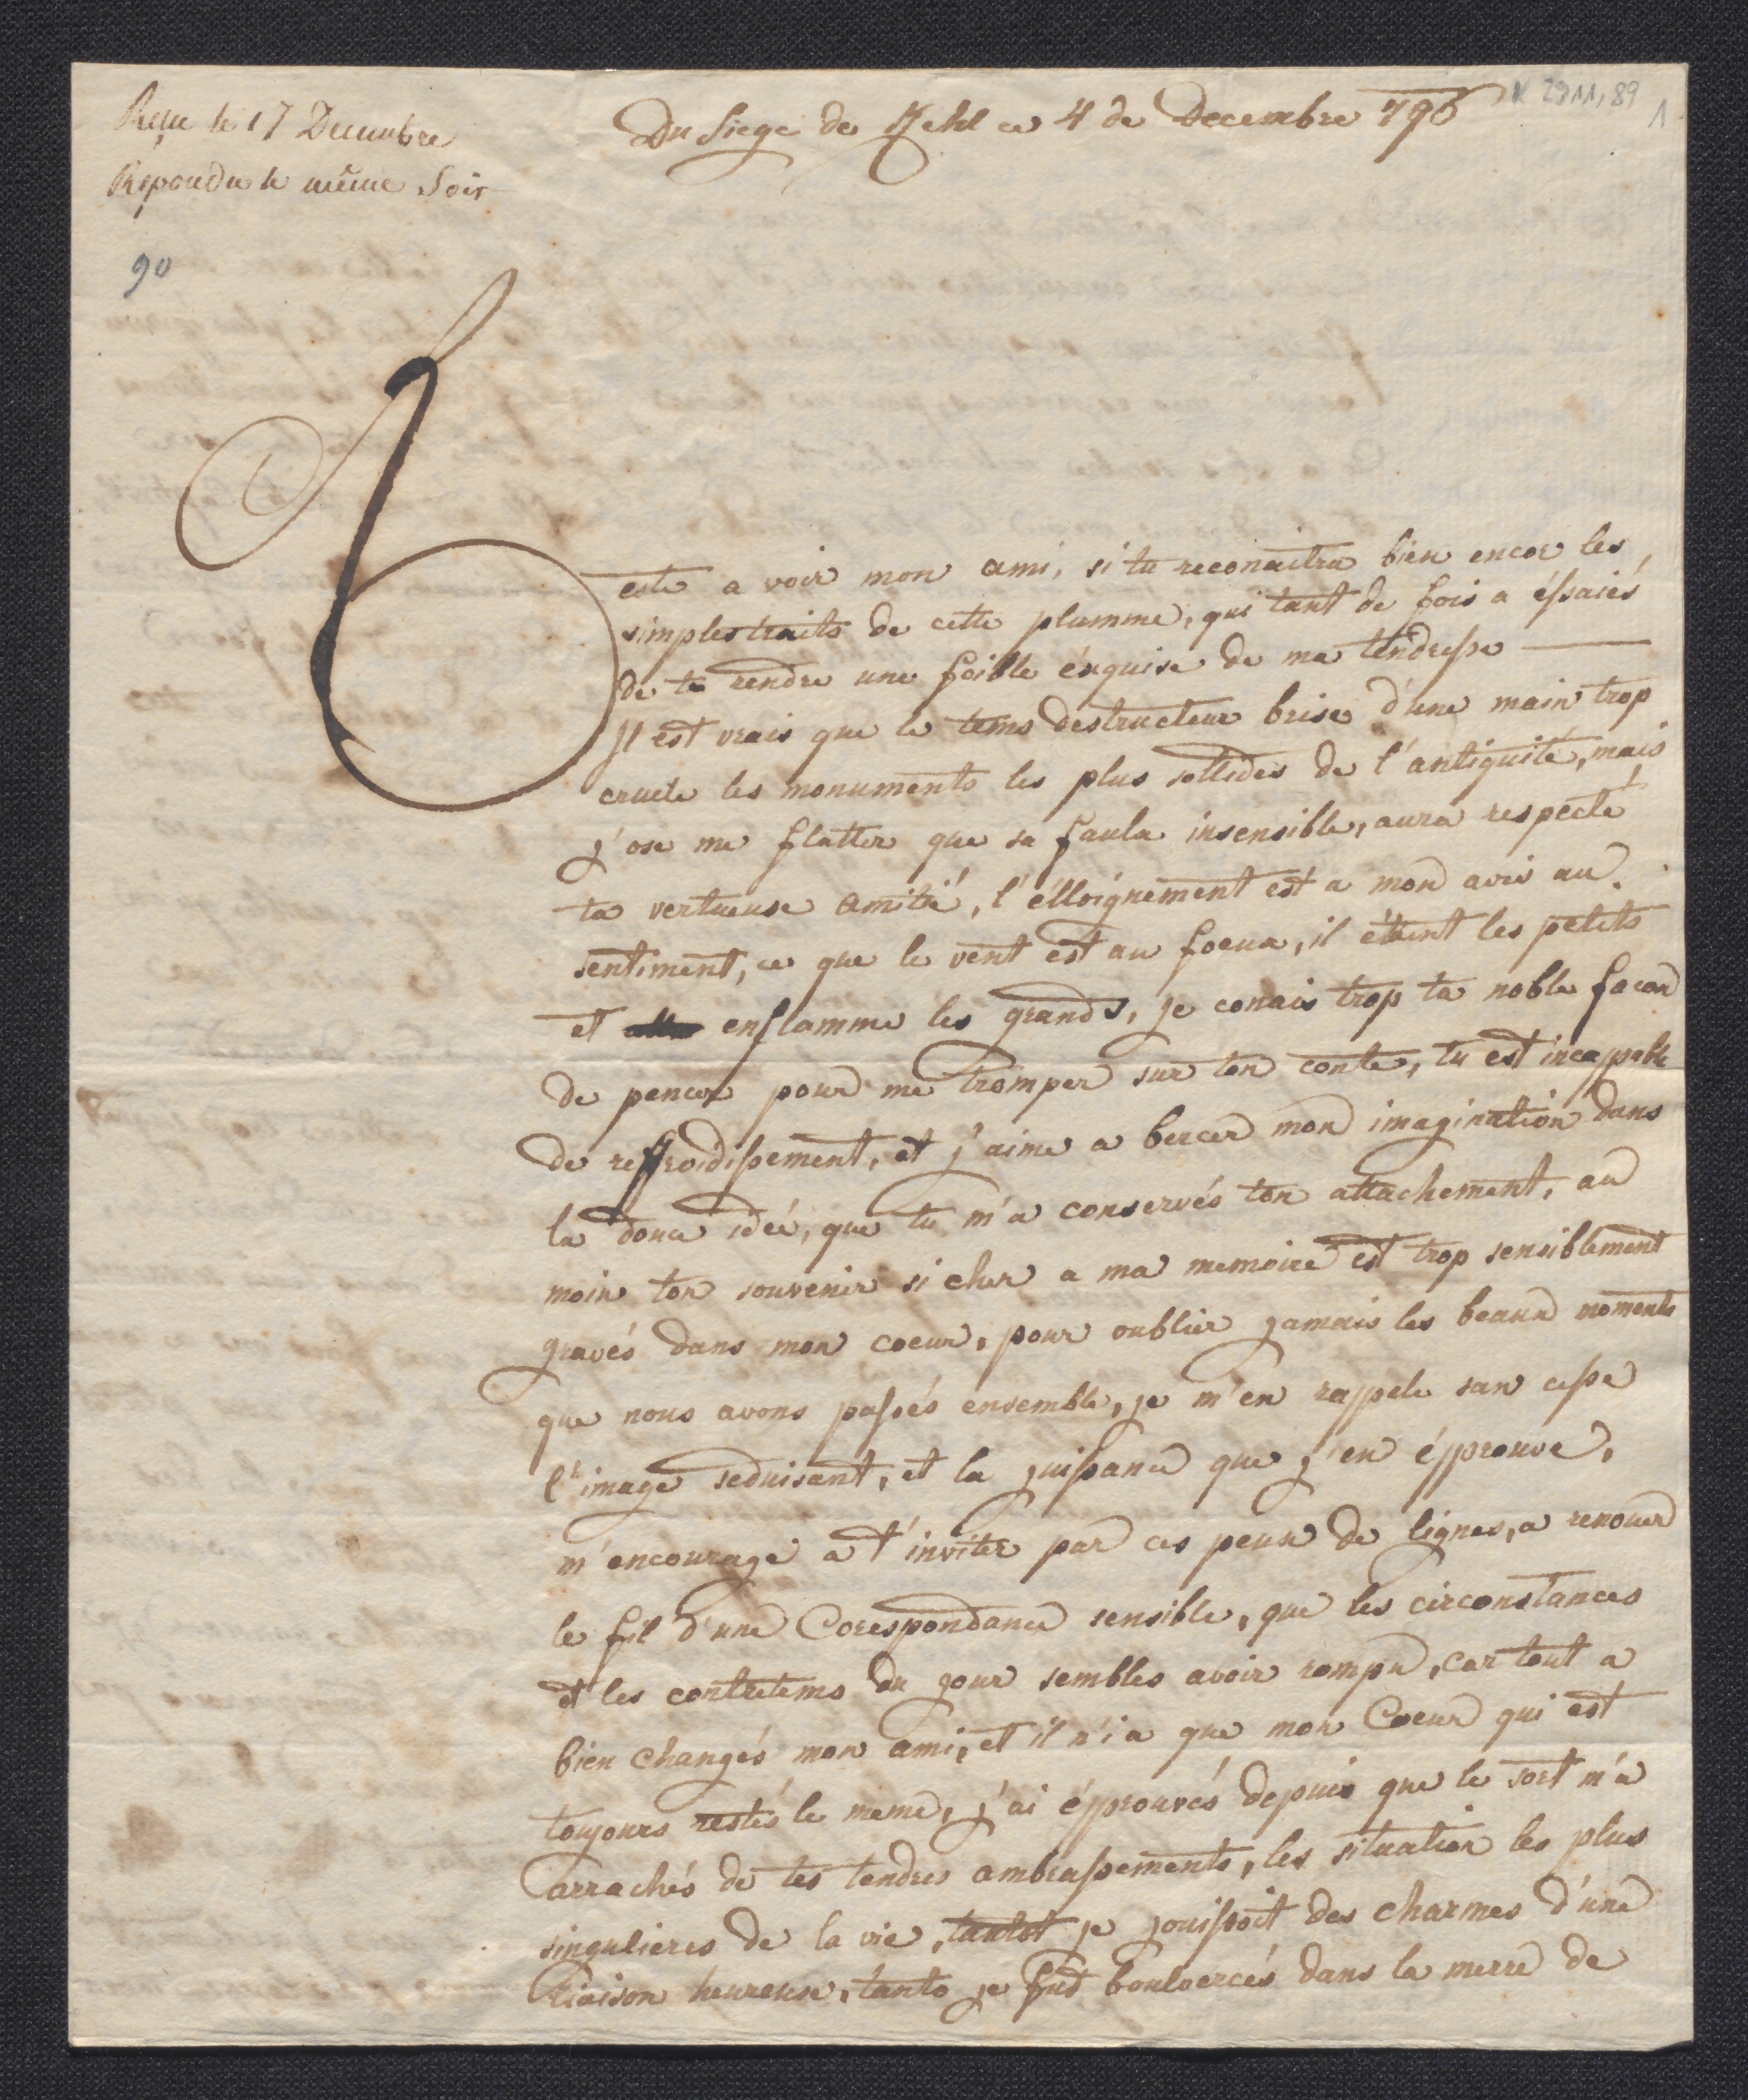 Reçue le 17 Decembre
Repondu le même Soir
90
Du siege de Kehl ce 4 de Decembre 796
1
este a voir mon ami, si tu reconaitra bien encor les
simples traits de cette plumme, qui tant de fois a éssaiés
de te rendre une foible ésquise de ma tendresse —
Il est vrais que le tems destructeur brise d'une main trop
cruele les monuments les plus sollides de l'antiquité, mais
j'ose me flatter que sa faula insensible, aura respecté
ta vertueuse amitié, l'élloignement est a mon avis au
sentiment, ce que le vent est au foeux, il éttint les petits
et enflamme les grands, je conais trop ta noble facon
de pencer pour me tromper sur ton conte, tu est incapable
de reffroidissement, et j'aime a bercer mon imagination dans
la douce idée, que tu m'a conservés ton attachement, au
moin ton souvenir si cher a ma memoire est trop sensiblement
gravés dans mon coeur, pour oublier jamais les beaux moments
que nous avons passés ensemble, je m'en rappele san cesse
l'image seduisant, et la juissance que j'en épprouve,
m'encourage a t'inviter par ces peux de lignes, a renouer
le fil d'une Corespondance sensible, que les circonstances
et les contretems du jour sembles avoir rompu, car tout a
bien changés mon ami, et il n'i a que mon Coeur qui est
toujours restés le meme, j'ai épprouvés depuis que le sort m'a
arrachés de tes tendres ambrassements, les situation les plus
singulieres de la vie, tantot je jouissoit des charmes d'une
liaison heureuse, tanto je fud boulvercés dans la merre de